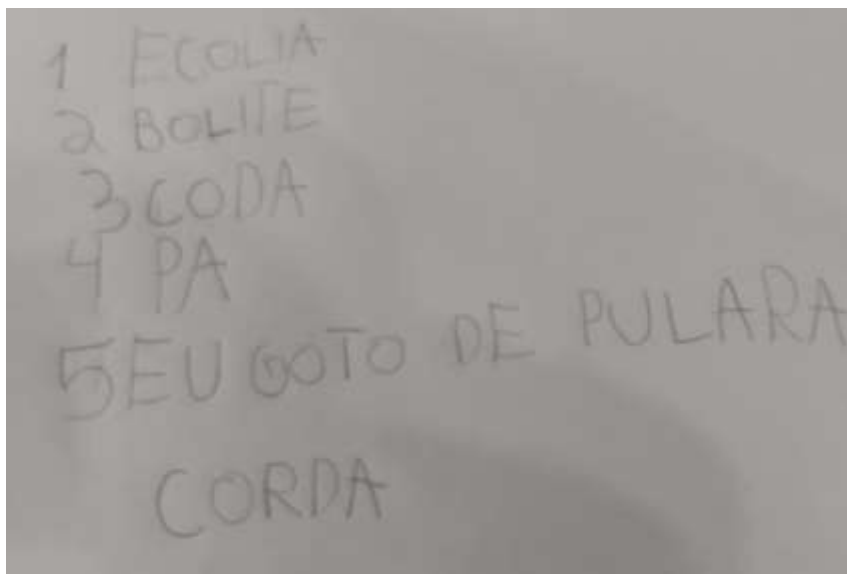 1 ECOLIA
2 BOLITE
3 CODA
4 PA
5 EU GOTO DE PULARA
CORDA